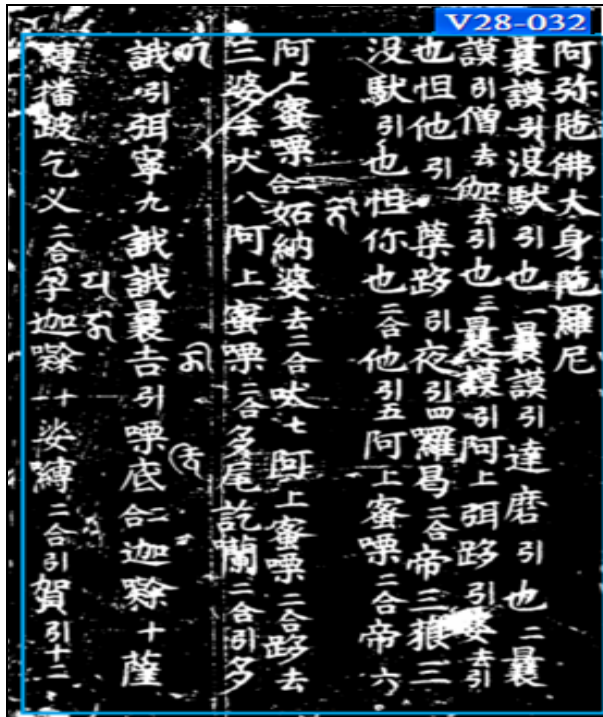 V28-032
阿弥陁佛大身陁羅尼
曩謨引没馱引也一曩謨引達磨引也二曩
謨引僧去伽去引也三曩謨引阿上弭跢引婆去引
也怛他引蘖跢引夜引四囉曷二合帝三藐三
没馱引也怛你也二合他引五阿上蜜㗚二合帝六
阿上蜜㗚二合妬納婆去二合吠七阿上蜜㗚二合跢去
三婆去吠八阿上蜜㗚二合多尾訖蘭二合引多
誐引弭寧九誐誐曩吉引㗚底二合迦㘑十薩
嚩播跛乞义二合孕迦㘑一十娑嚩二合引賀引十二